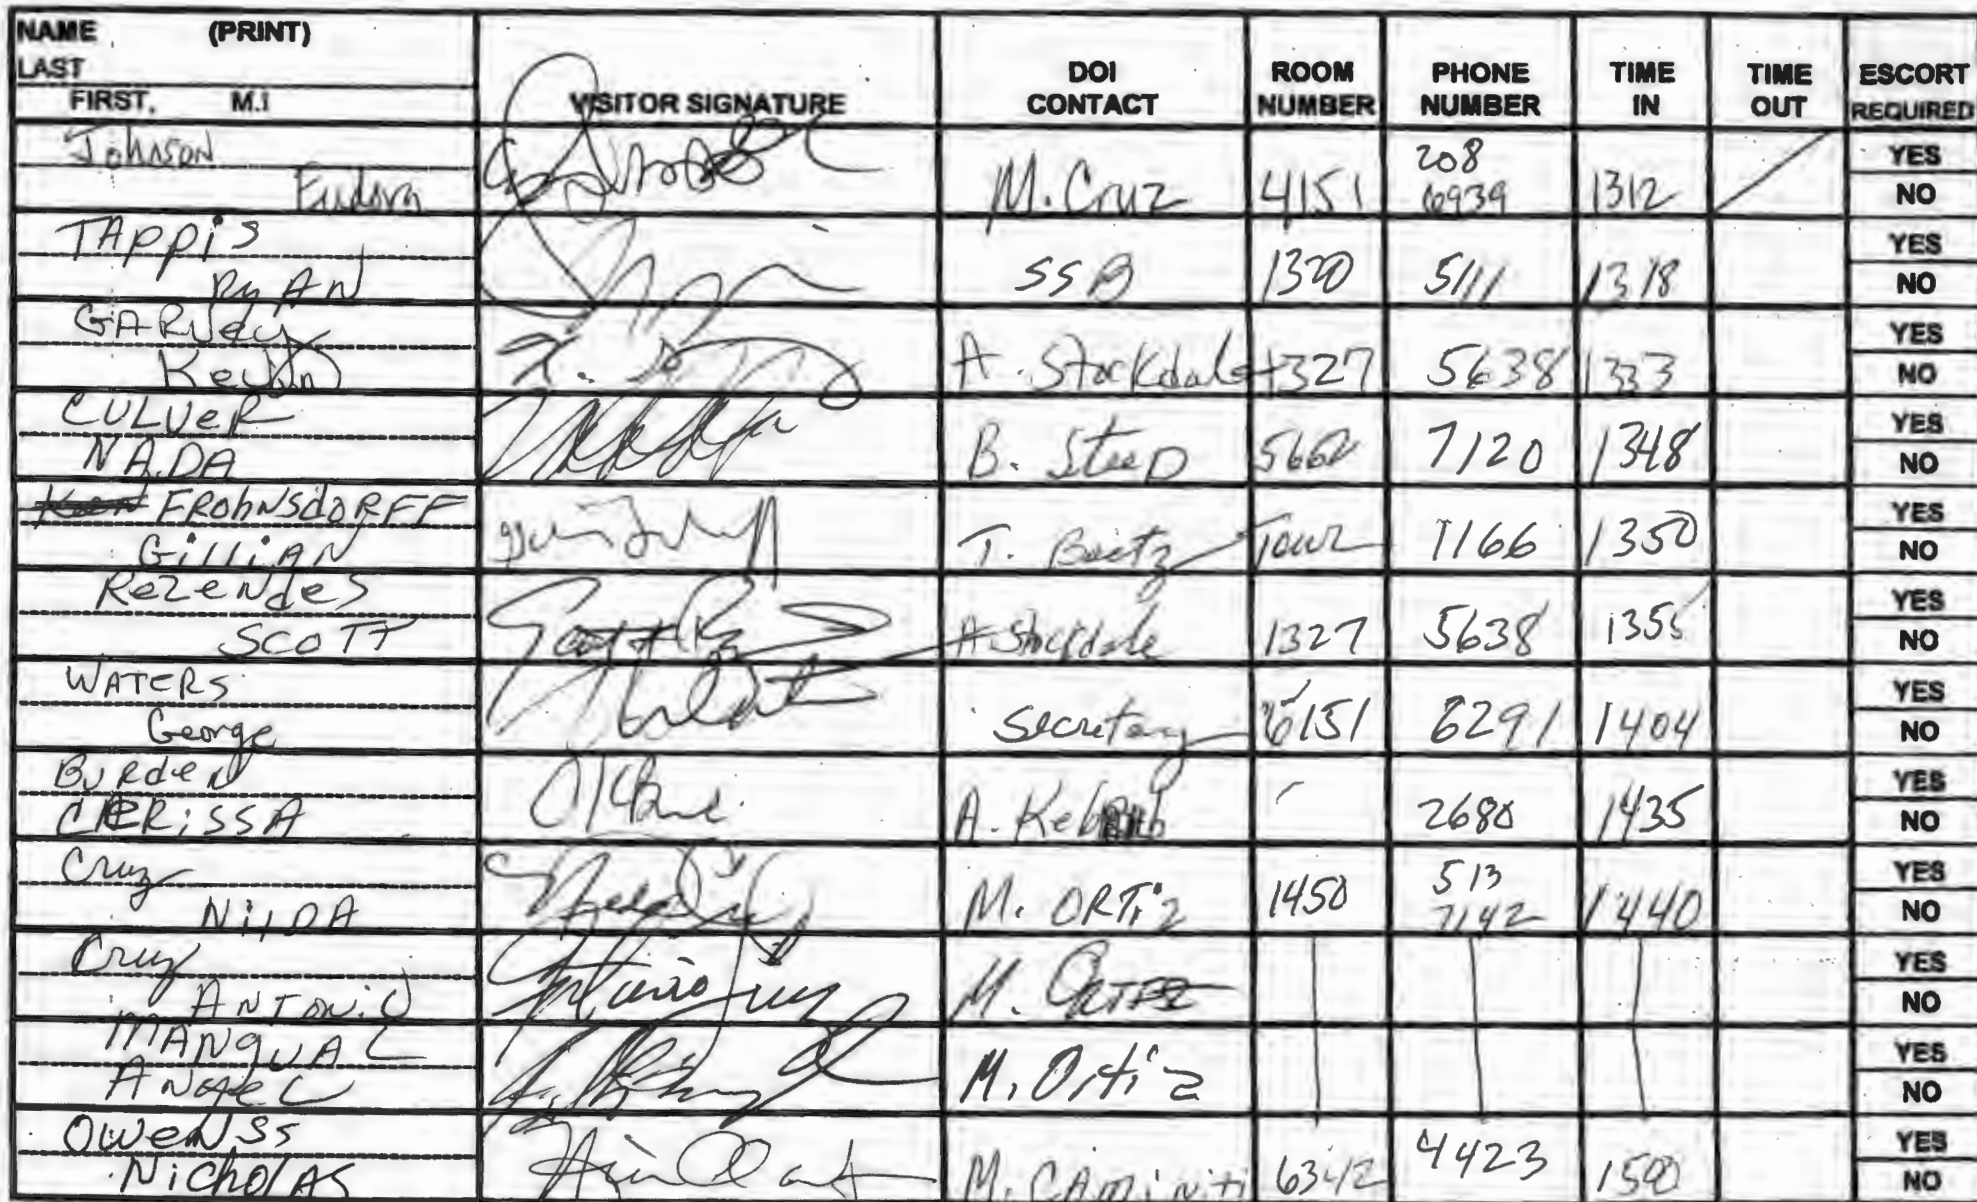 NAME (PRINT)
LAST
FIRST, M.I
VISITOR SIGNATURE
DOI CONTACT
ROOM NUMBER
PHONE NUMBER
TIME IN
TIME OUT
ESCORT REQUIRED
Johnson
Eudora
M. Cruz 4151 208 6939 1312
YES
NO
TAPPiS
RyAN
SSB 1320 5111 1318
YES
NO
GARVey
Kevin
A. Stockdale 1327 5638 1333
YES
NO
CULVeR
NADA
B. Steed 7120 1348
YES
NO
FROhNSdORFF
GilliAN
T. Tour 1166 1350
YES
NO
RezeNdeS
SCOTT
A Stockdale 1327 5638 1355
YES
NO
WATERS
George
Secretary 6151 6291 1404
YES
NO
BURdeN
CHERiSSA
A. 2680 1435
YES
NO
Cruz
NilDA
M. ORTiz 1450 513 7142 1440
YES
NO
Cruz
ANTONiO
M. ORTIZ
YES
NO
MANQUAL
ANGEL
M. Ortiz
YES
NO
OWeNSS
NicholAS
M. CAMiNiti 6342 4423 1500
YES
NO